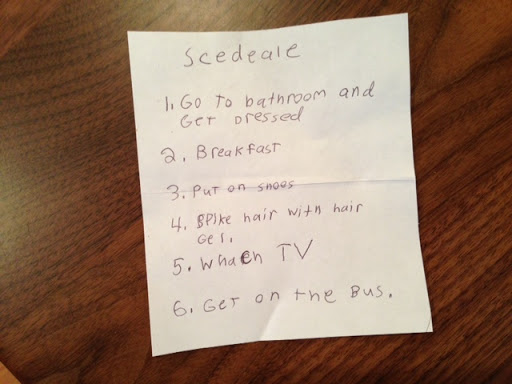 Scedeale
1. Go to bathroom and
Get Dressed
2. Breakfast
3. Put on shoes
4. Spike hair with hair
Gel.
5. Whaech TV
6. Get on the Bus.